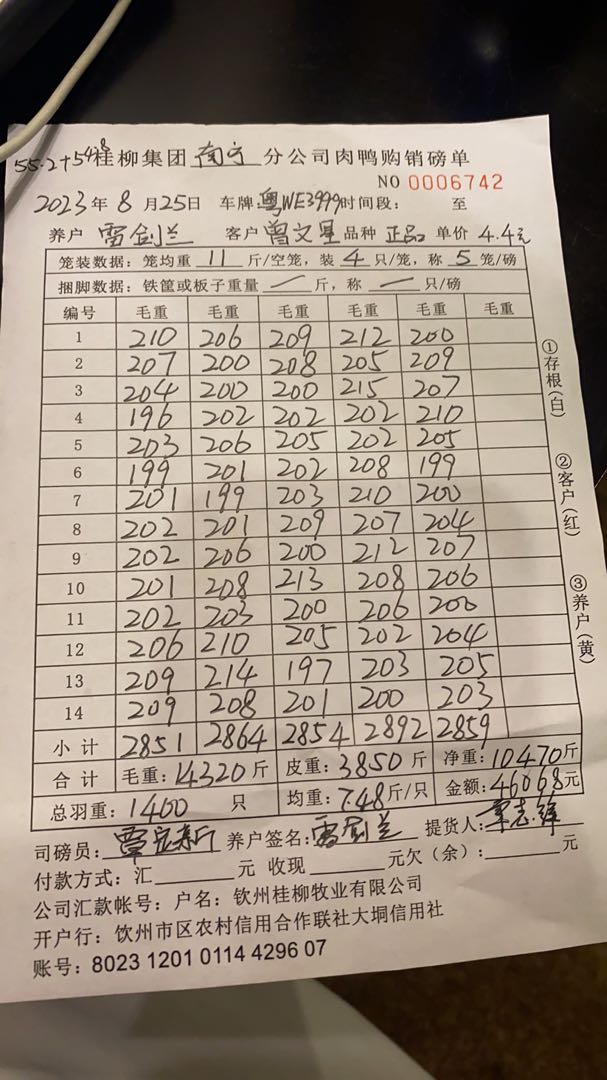 55.2+54.8
桂柳集团 南宁 分公司肉鸭购销磅单
NO 0006742
2023年 8 月 25日 车牌:粤WE3999 时间段: 至
养户 雷剑兰 客户 曾文星 品种 正品 单价 4.4元
笼装数据:笼均重 11 斤/空笼,装 4 只/笼,称 5 笼/磅
捆脚数据:铁筐或板子重量 一 斤,称 一 只/磅
编号 毛重 毛重 毛重 毛重 毛重 毛重
1 210 206 209 212 200
2 207 200 208 205 209
3 204 200 200 215 207
4 196 202 202 202 210
5 203 206 205 202 205
6 199 201 202 208 199
7 201 199 203 210 200
8 202 201 209 207 204
9 202 206 200 212 207
10 201 208 213 208 206
11 202 203 200 206 200
12 206 210 205 202 204
13 209 214 197 203 205
14 209 208 201 200 203
小计 2851 2864 2854 2892 2859
合计 毛重:14320斤 皮重:3850斤 净重:10470斤
总羽重:1400 只 均重:7.48斤/只 金额:46068元
司磅员: 养户签名:雷剑兰 提货人:
付款方式:汇 元 收现 元欠(余): 元
公司汇款帐号:户名:钦州桂柳牧业有限公司
开户行:钦州市区农村信用合作联社大垌信用社
账号:8023 1201 0114 4296 07
①存根(白)
②客户(红)
③养户(黄)